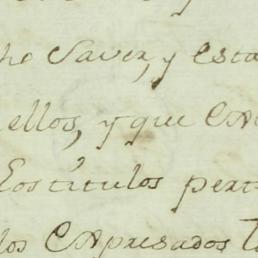 ho Saver, y esta
ellos, y que
Los títulos pert
los Expresados